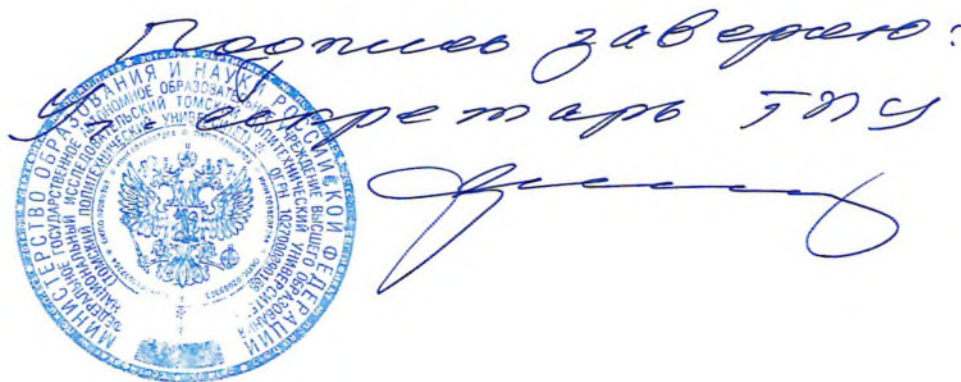 Подпись заверяю:
Уч. секретарь ТПУ
МИНИСТЕРСТВО ОБРАЗОВАНИЯ И НАУКИ РОССИЙСКОЙ ФЕДЕРАЦИИ
ФЕДЕРАЛЬНОЕ ГОСУДАРСТВЕННОЕ АВТОНОМНОЕ ОБРАЗОВАТЕЛЬНОЕ УЧРЕЖДЕНИЕ ВЫСШЕГО ОБРАЗОВАНИЯ
НАЦИОНАЛЬНЫЙ ИССЛЕДОВАТЕЛЬСКИЙ ТОМСКИЙ ПОЛИТЕХНИЧЕСКИЙ УНИВЕРСИТЕТ
ОГРН